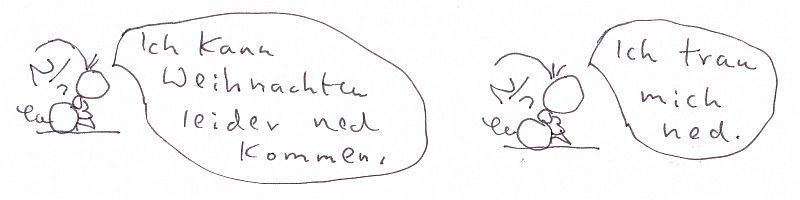 Ich kann
Weihnachten
leider ned
kommen.
Ich trau
mich
ned.